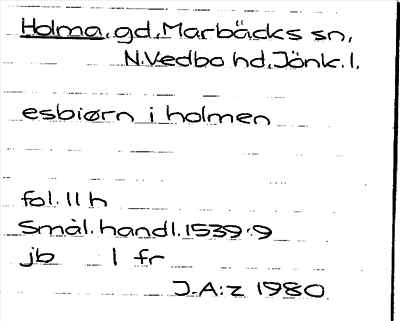 Holma, gd, Marbäcks sn,
N.Vedbo hd, Jönk. l.
esbiørn i holmen
fol. 11 h
Smål. handl. 1539:9
jb 1 fr
J.A:z 1980